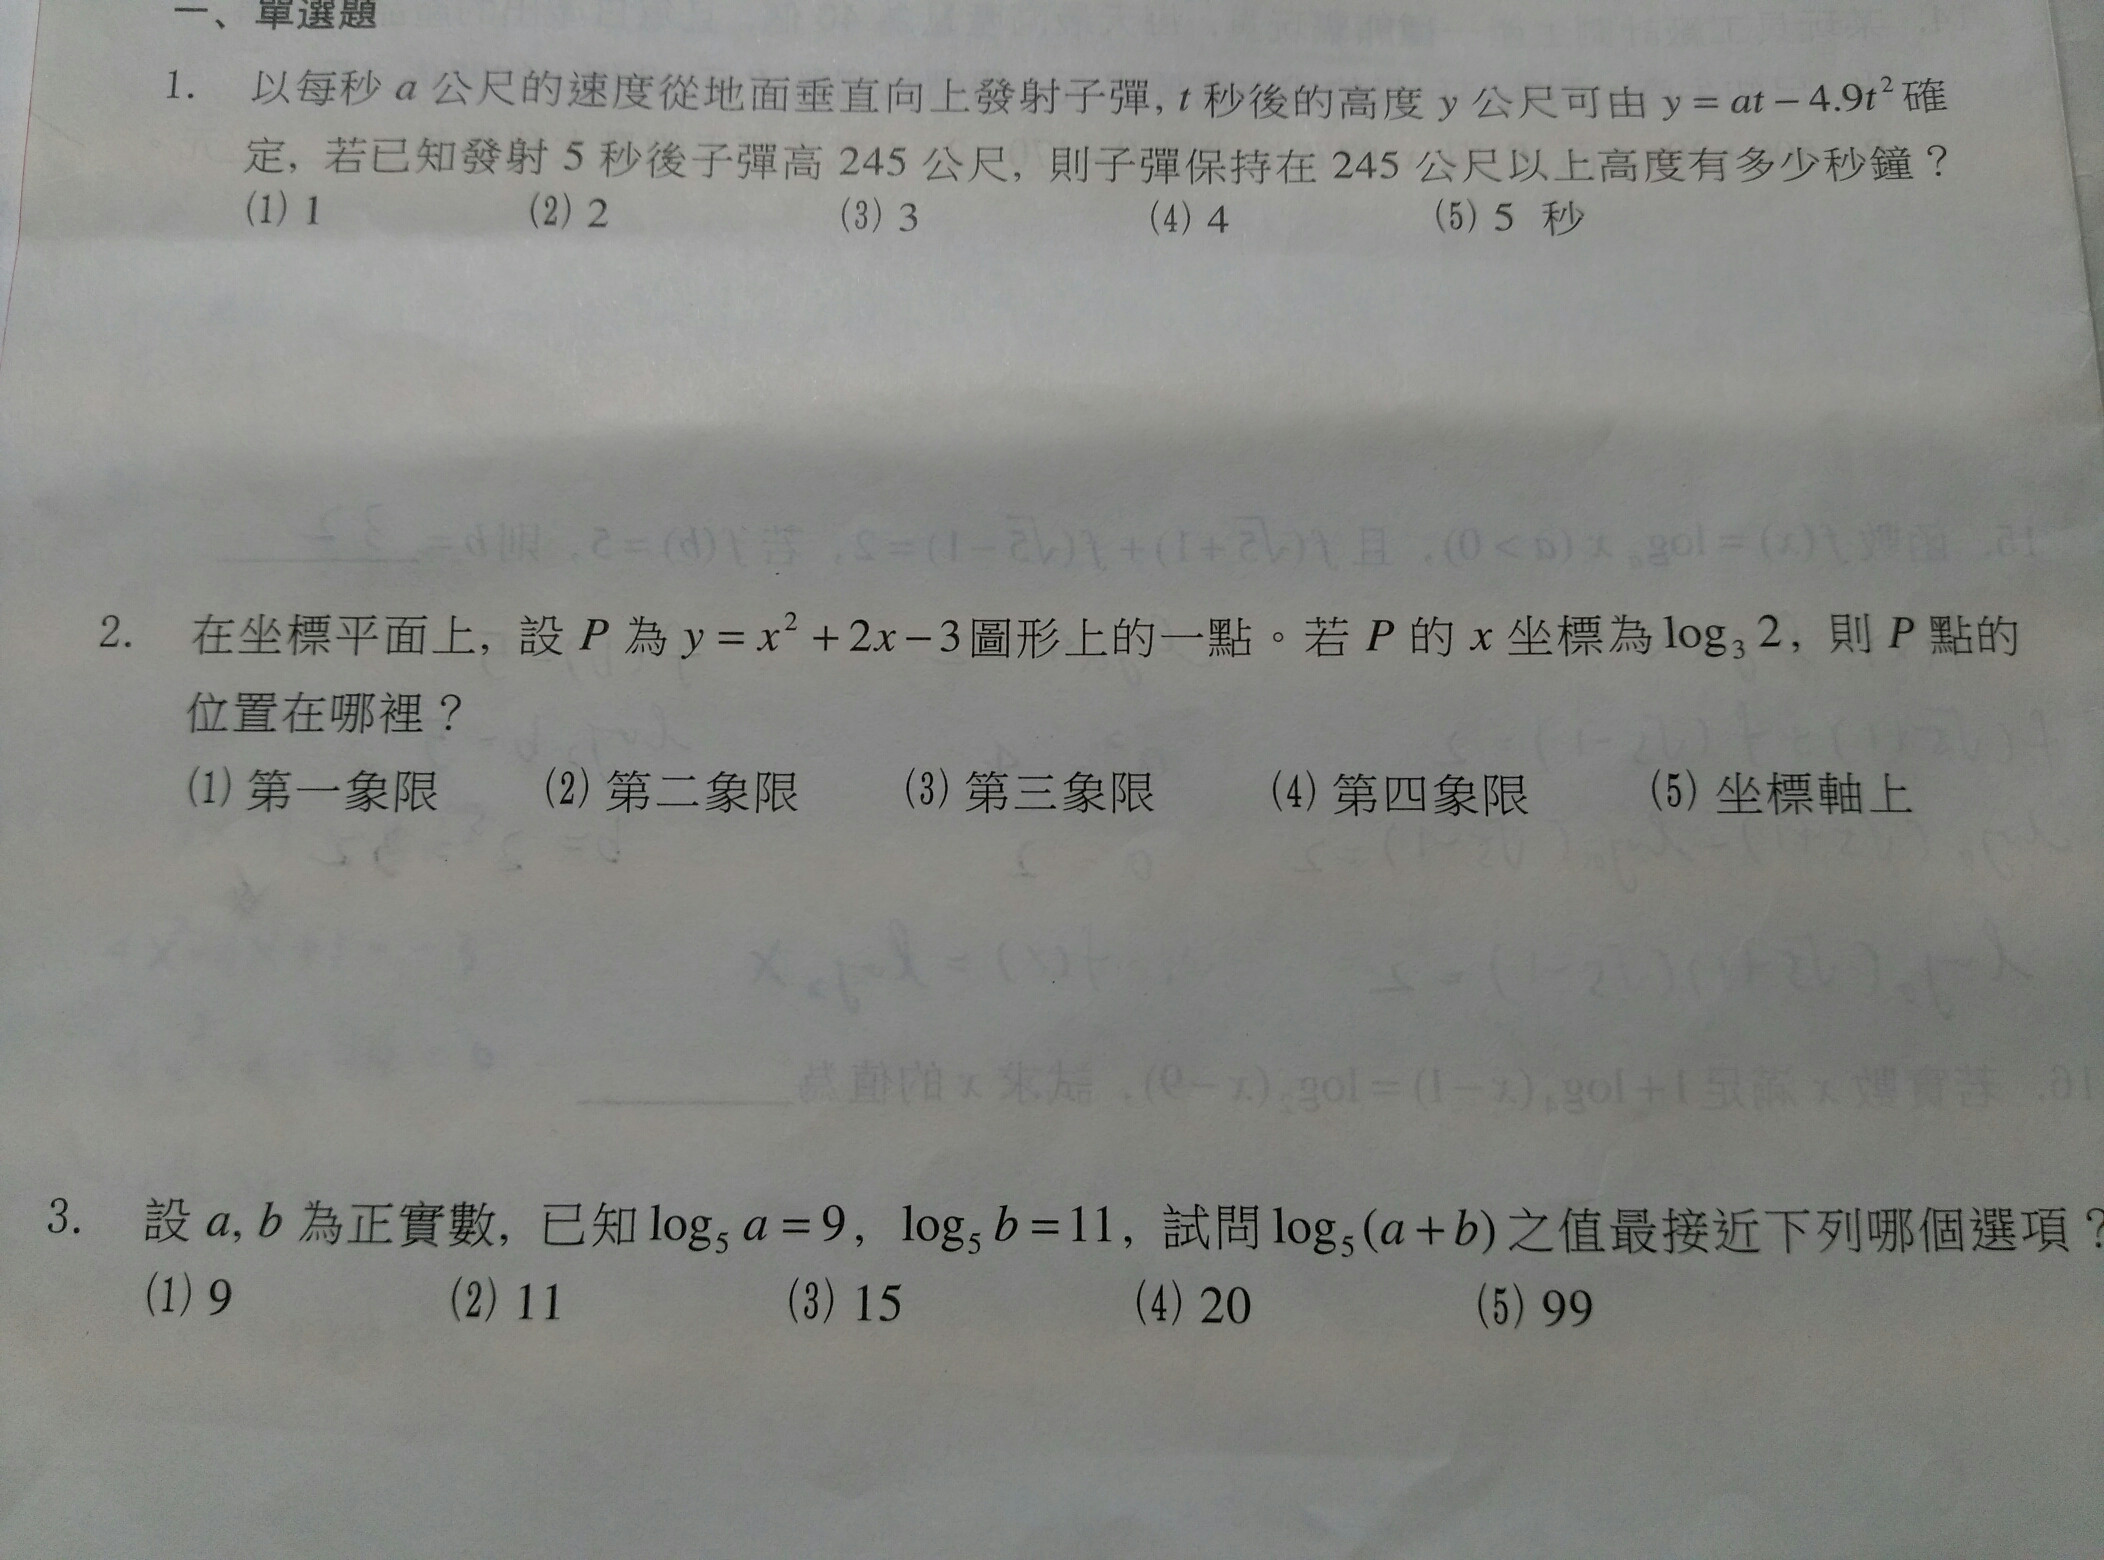 一、單選題
1. 以每秒 a 公尺的速度從地面垂直向上發射子彈, t 秒後的高度 y 公尺可由 y = at − 4.9t² 確
定, 若已知發射 5 秒後子彈高 245 公尺, 則子彈保持在 245 公尺以上高度有多少秒鐘？
(1) 1 (2) 2 (3) 3 (4) 4 (5) 5 秒
2. 在坐標平面上, 設 P 為 y = x² + 2x − 3 圖形上的一點。若 P 的 x 坐標為 log₃ 2, 則 P 點的
位置在哪裡？
(1) 第一象限 (2) 第二象限 (3) 第三象限 (4) 第四象限 (5) 坐標軸上
3. 設 a, b 為正實數, 已知 log₅ a = 9, log₅ b = 11, 試問 log₅(a + b) 之值最接近下列哪個選項？
(1) 9 (2) 11 (3) 15 (4) 20 (5) 99